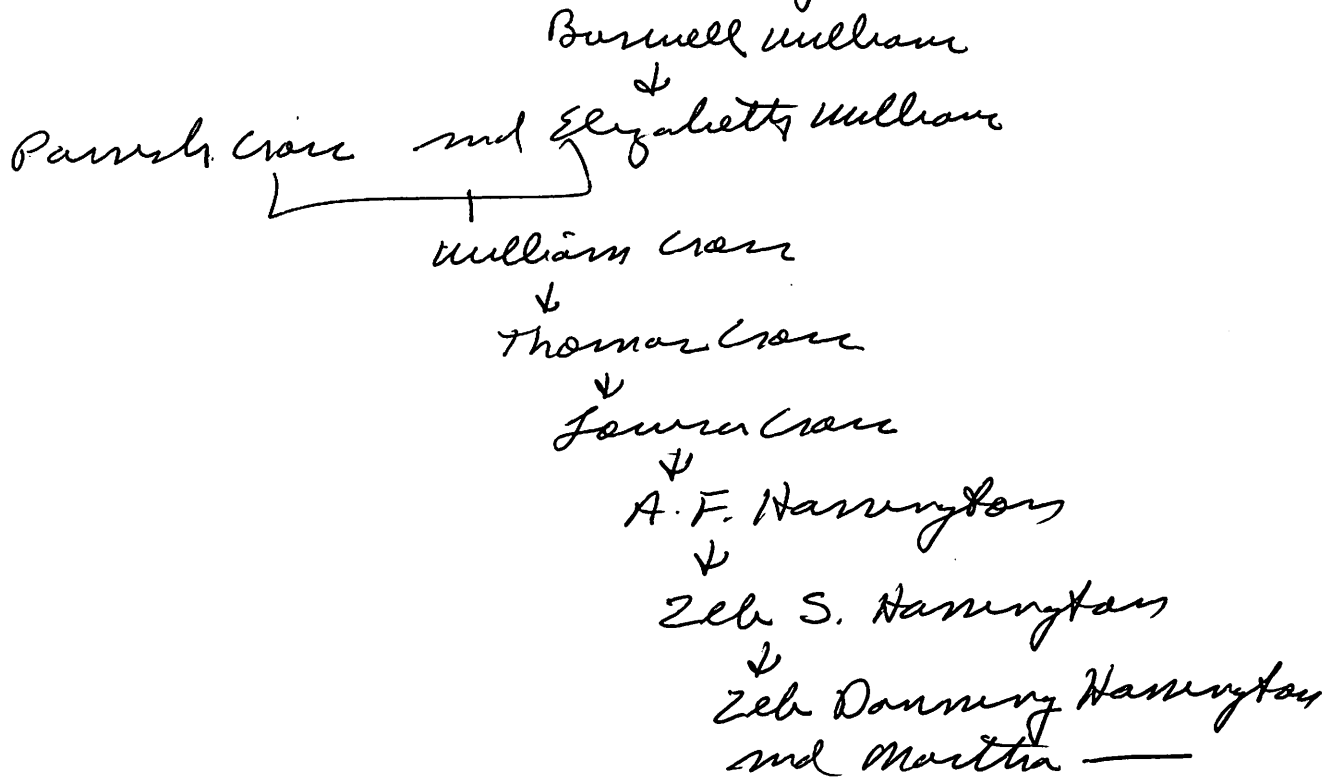 Burwell William
Parrish Cross md Elizabeth William
William Cross
Thomas Cross
Cross
A. F. Harrington
Zeb S. Harrington
Zeb Harrington
md Martha ——